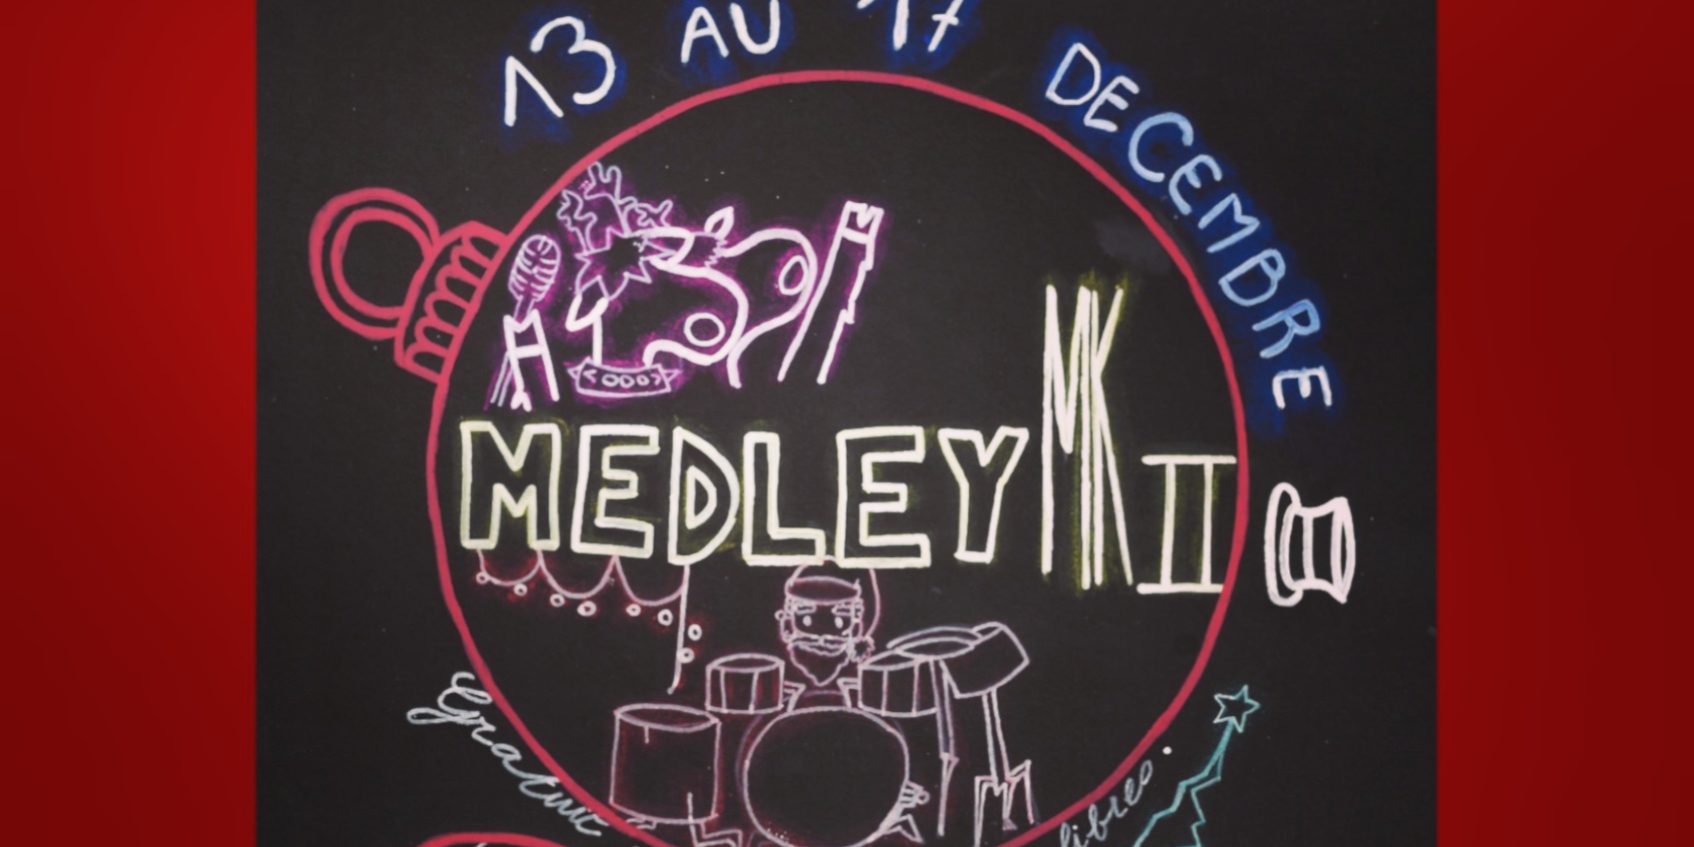 13 AU 17 DECEMBRE
MEDLEY MK II
Gratuit
libres.